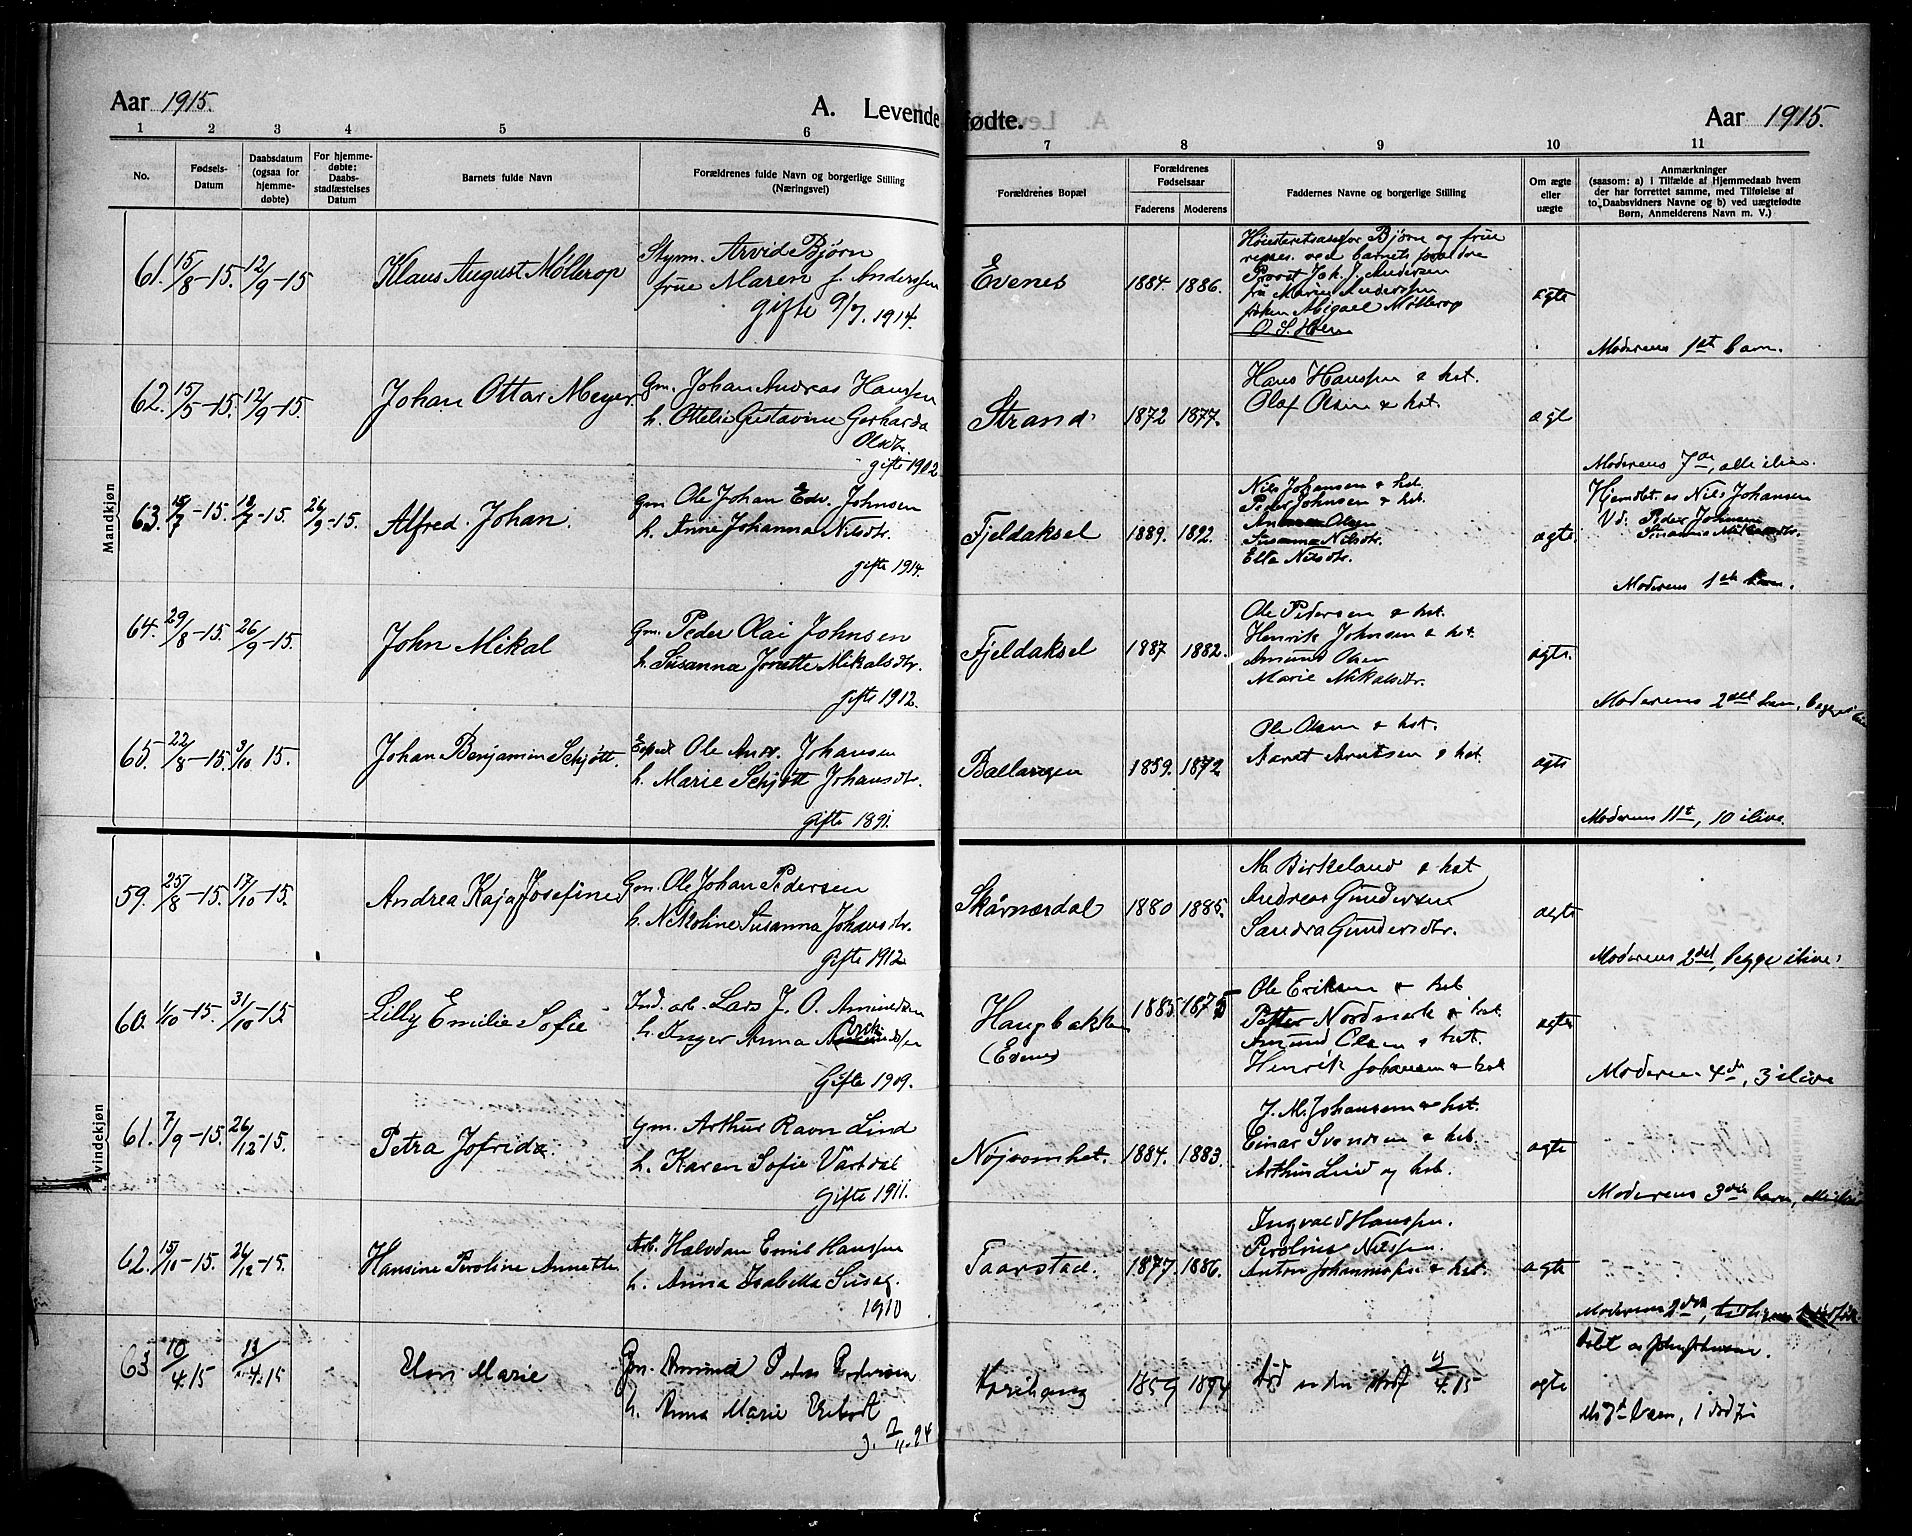 Aar 1915.
A. Levende fødte.
Aar 1915.
1 2 3 4 5 6 7 8 9 10 11
No.
Fødsels-
Datum
Daabsdatum
(ogsaa for
hjemme-
døbte)
For hjemme-
døbte:
Daabs-
stadfæstelses
Datum
Barnets fulde Navn
Forældrenes fulde Navn og borgerlige Stilling
(Næringsvei)
Forældrenes Bopæl
Forældrenes
Fødselsaar
Faderens Moderens
Faddernes Navne og borgerlige Stilling
Om ægte
eller
uægte
Anmærkninger
(saasom: a) i Tilfælde af Hjemmedaab hvem
der har forrettet samme, med Tilføielse af
to Daabsvidners Navne og b) ved uægtefødte
Børn, Anmelderens Navn m. V.)
Mandkjøn
61. 15/8-15. 12/9-15 Klaus August Møllerop
Styrm. Arvid Bjørn
frue Maren f. Anderssen
gifte 9/7. 1914.
Evenes 1884. 1886.
Høiesteretsassesor Bjørn og frue
repres. ved barnets forældre
Provst Joh. J. Andersen
fru Marie Anderssen
frøken Abigael Møllerop
O. S. Holm
ægte
Moderens 1st barn.
62. 15/5-15. 12/9-15. Johan Ottar Meyer.
Gm. Johan Andreas Hanssen
h. Ottelie Gustavine Gerharda
Olsdtr.
gifte 1902
Strand 1872 1877.
Hans Hanssen & hst.
Olaf Olsen & hst.
ægt
Moderens 7de, alle ilive.
63. 15/7-15. 18/7-15. 26/9-15. Alfred Johan.
Gm. Ole Johan Edv. Johnsen
h. Anne Johanna Nilsdtr.
gifte 1914.
Fjeldaksel 1889. 1892.
Nils Johansen & hst.
Peder Johnsen & hst.
Olsen
Susanna Nilsdtr.
Ella Nilsdtr.
ægte.
Hjemdbt. av Nils Johansen
Vd: Peder Johnsen
Susanna
Moderens 1ste barn.
64. 29/8-15. 26/9-15. John Mikal
Gm. Peder Olai Johnsen
h. Susanna Jonette Mikalsdtr.
gifte 1912.
Fjeldaksel 1887 1882.
Ole Pedersen & hst.
Henrik Johnsen & hst.
Amund Olsen
Marie Mikalsdtr.
ægte.
Moderens 2det barn, begge ilive
65. 22/8-15. 3/10 15. Johan Benjamin Schjøtt.
Exped. Ole Andr. Johansen
h. Marie Schjøtt Johansdtr.
gifte 1891.
Ballangen 1859. 1872
Ole Olsen & hst.
Arndt Arntsen & hst.
ægte
Moderens 11t, 10 ilive.
Kvindekjøn
59. 25/8-15 17/10-15. Andrea Kaja Josefine
Gm. Ole Johan Pedersen
h. Nikoline Susanna Johansdtr.
Gifte 1912
Skårnærdal 1880 1885.
M. Birkeland & hst
Andreas Gundersen
Sandra Gundersdtr.
ægte
Moderens 2det, begge ilive.
60. 1/10-15. 31/10-15. Lilly Emilie Sofie
Ind. arb. Lars J. O. Amundsen
h. Inger Anna
Gifte 1909.
Haugbakken
(Evenes)
1885 1875
Ole Eriksen & hst
Petter Nordmark & hst.
Amund Olsen & hst.
Henrik Johansen & hst
ægte
Moderen 4de, 3 ilive
61. 7/9-15. 26/12-15. Petra Jofrida.
Gm. Arthur Ravn Lind
h. Karen Sofie Vartdal
Gifte 1911.
Nøjsomhet. 1884. 1883.
J. M. Johansen & hst.
Einar Svendsen & hst.
Arthur Lind og hst.
ægte
Moderens 3die barn, alle ilive
62. 15/10-15. 26/12-15. Hansine Peroline Annette
Arb. Halvdan Emil Hanssen
h. Anna Isabella Susag.
1910
Taarstad. 1877. 1886.
Ingvald Hanssen.
Peroline Nilssen.
Anton Johannessen & hst.
ægte
Moderens 2det,
døbt av
63 10/4.15 13/4.15 Elen Marie
Gm. Amund Peder Pedersen
h. Anna Marie
g. 17/11.94
1859 1874
Død
15/4.15
ægte
M. 7t barn, 1 død før